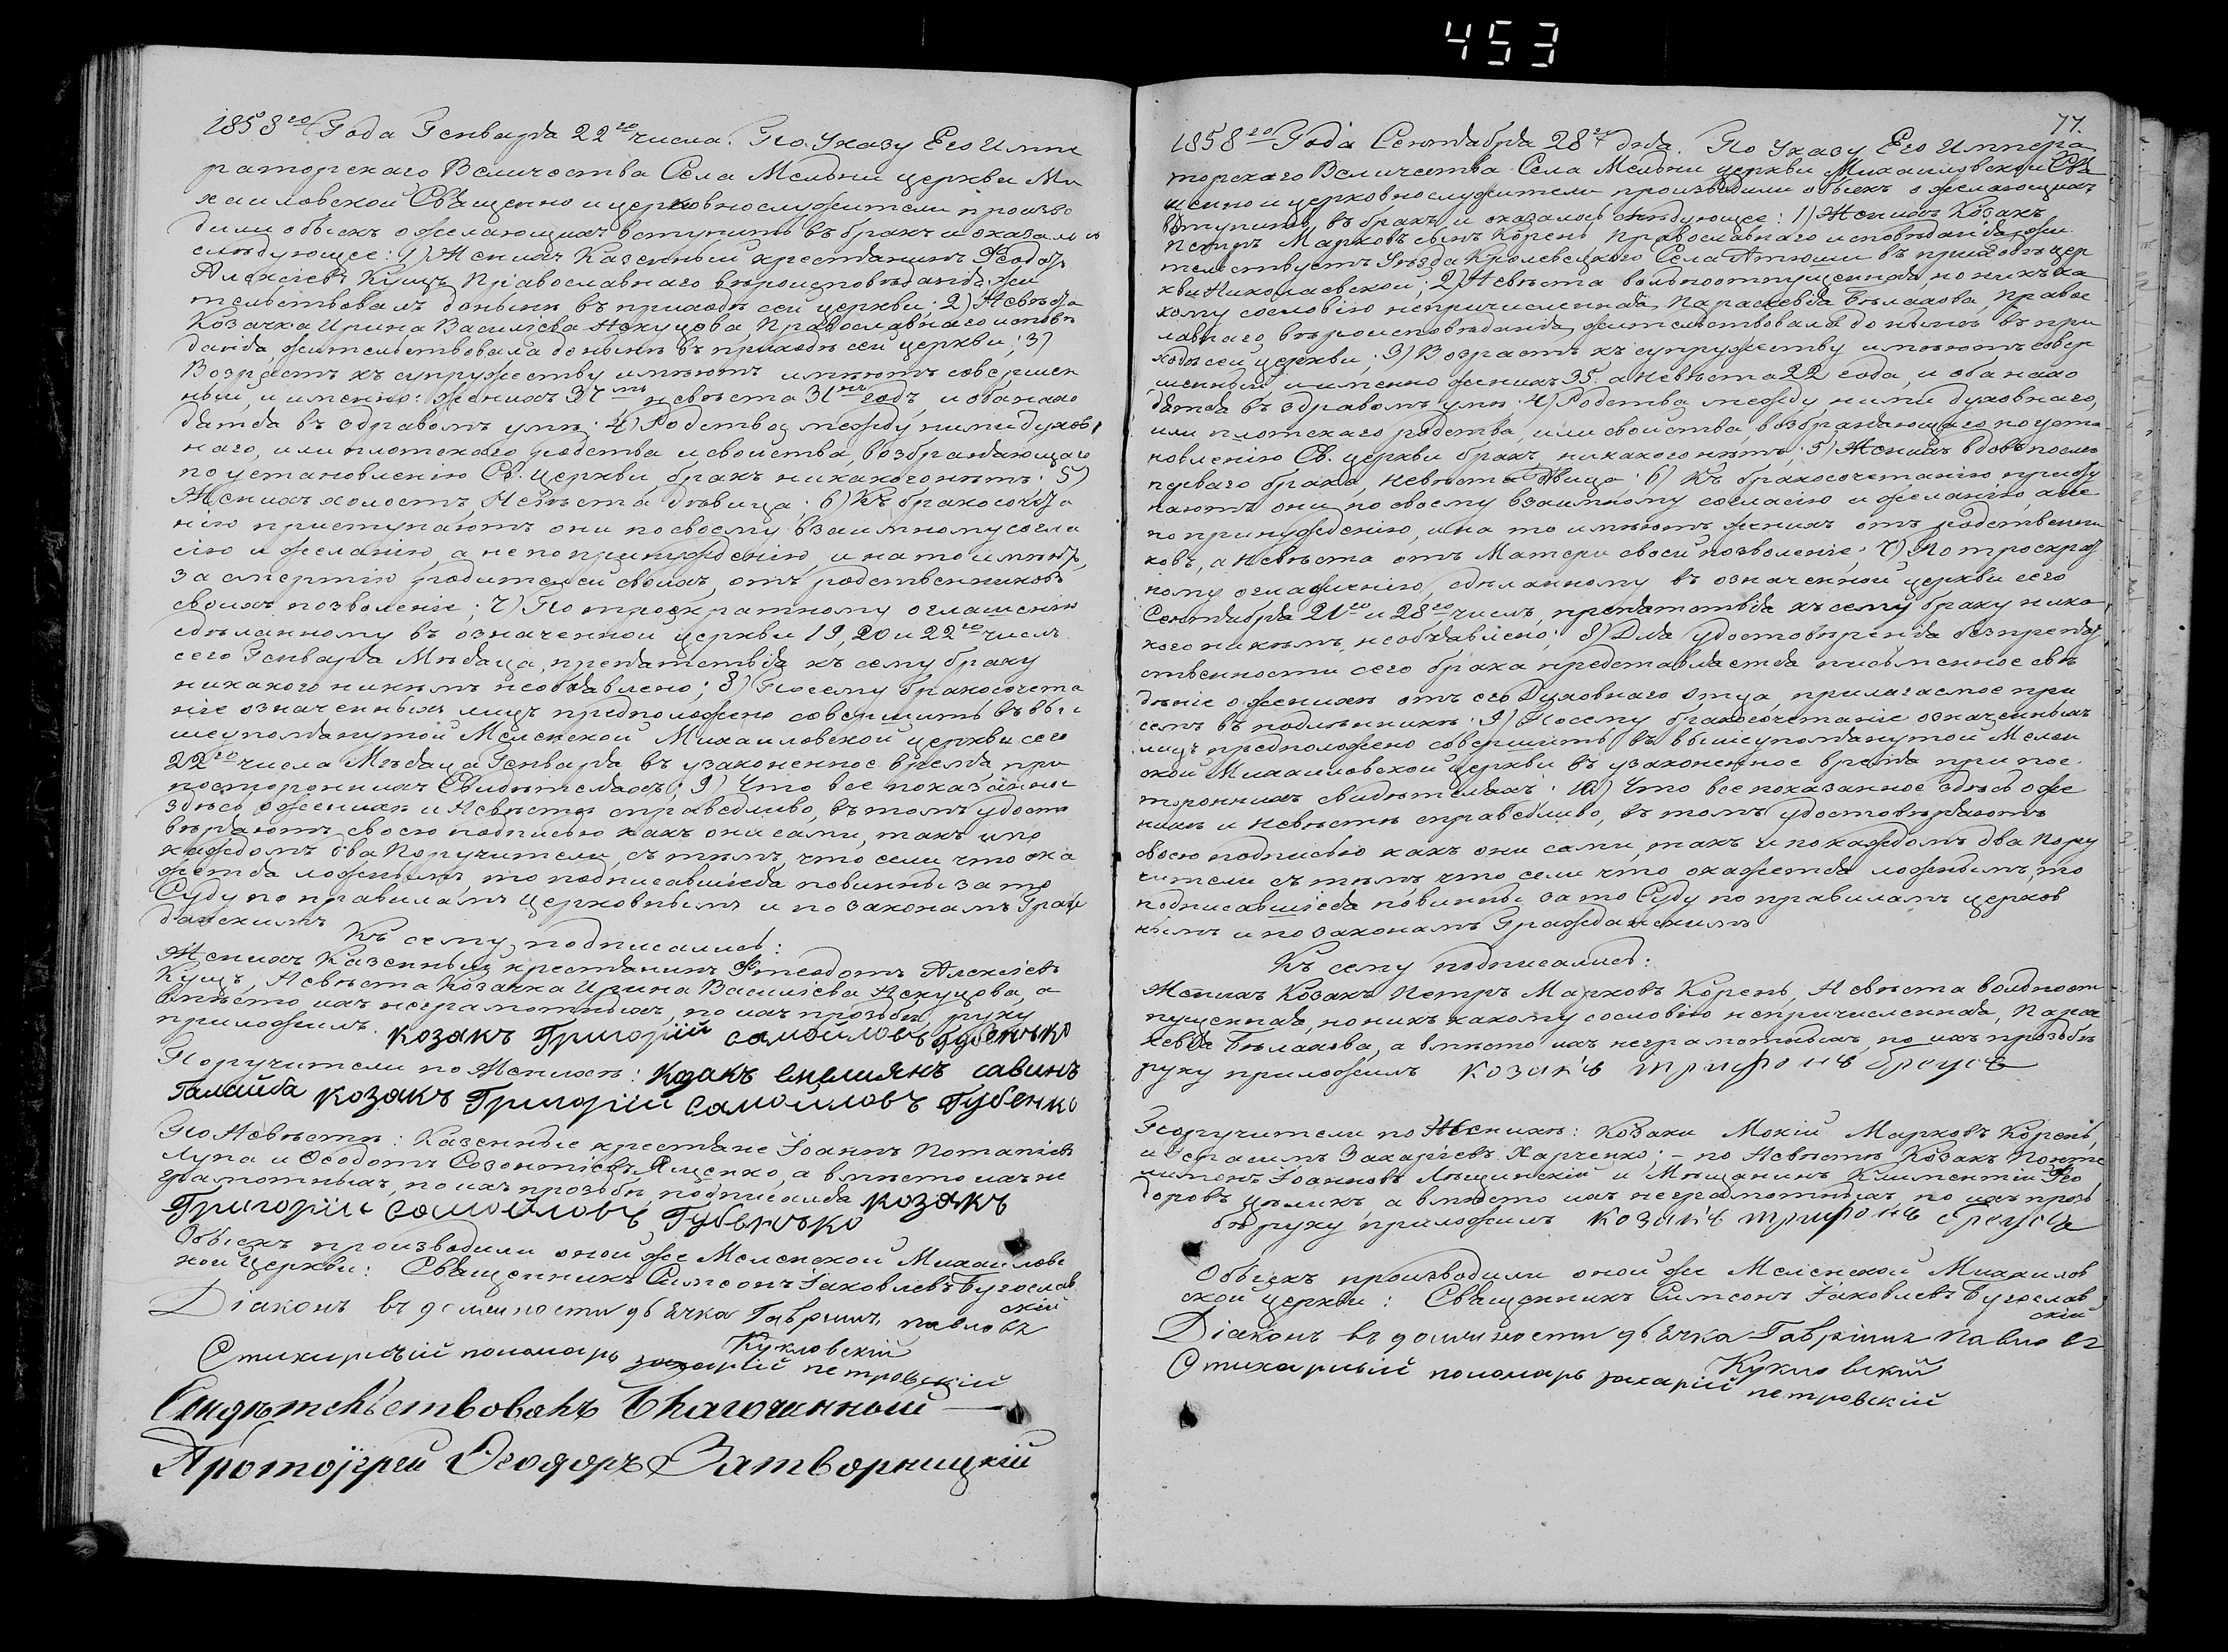 453
1858го Года Генваря 22го числа. По Указу Его Импе
раторскаго Величества Села Мельни церкви Ми
хаиловской Священно и церковнослужители произво
дили обыскъ о желающихъ вступить въ бракъ и оказалось
слѣдующее: 1) Женихъ Казенный крестянинъ Ѳеодотъ
Алексіевъ Кущъ, Православнаго вѣроисповѣданія, жи
тельствовалъ донынѣ въ приходѣ сей церкви; 2) Невѣста
Козачка Ирина Василіева Православнаго исповѣ
данія, жительствовала донынѣ въ приходѣ сей церкви; 3)
Возрастъ къ супружеству имѣютъ имѣютъ совершен
ный, и именно: женихъ невѣста 31 годъ, и оба нахо
дятся въ здравомъ умѣ: 4) Родства между ними духов
наго, или плотскаго родства и свойства, возбраняющаго
по установленію Св. Церкви, бракъ никакого нѣтъ: 5)
Женихъ холостъ, Невѣста дѣвица; 6) Къ бракосочета
нію приступаютъ они по своему взаимному согла
сію и желанію, а не по принужденію, и на то имѣютъ,
за смертію родителей своихъ, отъ родственниковъ
своихъ позволеніе; 7) По троекратному оглашенію
сдѣланному въ означенной церкви 19, 20 и 22го числъ
сего Генваря Мѣсяца, препятствія къ сему браку
никакого никѣмъ необъявлено; 8) Посему бракосочета
ніе означенныхъ лицъ предположено совершить въ вы
шеупомянутой Меленской Михаиловской церкви сего
22го числа Мѣсяца Генваря въ узаконенное время при
постороннихъ Свидѣтеляхъ; 9) Что все показанное
здѣсь о женихѣ и Невѣстѣ справедливо, въ томъ удосто
вѣряютъ своею подписью какъ они сами, такъ и по
каждомъ два Поручители, съ тѣмъ, что если что ока
жется ложнымъ, то подписавшіеся повинны за то
Суду по правиламъ Церковнымъ и по законамъ Граж
данскимъ
Къ сему подписались:
Женихъ Казенный крестянинъ Ѳеодотъ Алексіевъ
Кущъ, Невѣста Козачка Ирина Василіева а
вмѣсто ихъ неграмотныхъ, по ихъ прозьбѣ руку
приложилъ. козакъ Григорій самойловъ губенько
Поручители по Женихѣ: Козакъ емелиянъ савинъ
козакъ Григорій самойловъ Губенко
По Невѣстѣ: Казенные крестяне Іоаннъ Потапіевъ
Лупа и Ѳеодотъ Созонтіевъ Ященко, а вмѣсто ихъ не
грамотныхъ, по ихъ прозьбѣ подписался козакъ
Григорій самойловъ Губенько
Обыскъ производили оной же Меленской Михаиловс
кой Церкви: Священникъ Симеонъ Іаковлевъ Бугослав
скій
Діаконъ въ должности дьячка Гавріилъ Павловъ
Кукловскій
Стихарный пономарь захарій петровскій
Свидѣтельствовалъ Благочинный
Протоіерей Ѳеодоръ Затворницкій
77.
1858го Года Сентября 28го дня. По Указу Его Импера
торскаго Величества Села Мельни церкви Михаиловской Свя
щенно и церковнослужители производили обыскъ о желающихъ
вступить въ бракъ и оказалось слѣдующее: 1) Женихъ Козакъ
Петръ Марковъ сынъ Корень, Православнаго исповѣданія, жи
тельствуетъ Уѣзда Кролевецкаго Села Атюши въ приходѣ цер
кви Николаевской; 2) Невѣста вольноотпущенная, но никъ ка
кому сословію непричисленная, Параскевія Бѣлахова, Правос
лавнаго вѣроисповѣданія, жительствовала донынѣ въ при
ходѣ сей церкви; 3) Возрастъ къ супружеству имѣютъ совер
шенный и именно женихъ 35. а Невѣста 22 года, и оба нахо
дятся въ здравомъ умѣ: 4) Родства между ними духовнаго,
или плотскаго родства, или свойства, возбраняющаго по уста
новленію Св. церкви бракъ, никакого нѣтъ; 5) Женихъ вдовъ послѣ
перваго брака, Невѣста Дѣвица: 6) Къ бракосочетанію присту
паютъ они по своему взаимному согласію и желанію, а не
по принужденію, и на то имѣютъ женихъ отъ родственни
ковъ, а Невѣста отъ Матери своей позволеніе; 7) По троекрат
ному оглашенію, сдѣланному въ означенной церкви сего
Сентября 21го и 28го числъ, препятствія къ сему браку ника
кого никѣмъ, необъявлено; 8) Для удостовѣренія безпрепят
ственности сего брака представляется письменное свѣ
дѣніе о женихѣ отъ его Духовнаго Отца, прилагаемое при
семъ въ подлинникѣ: 9) Посему бракосочетаніе означенныхъ
лицъ предположено совершить въ вышеупомянутой Мелен
ской Михаиловской церкви въ узаконенное время при пос
тороннихъ свидѣтеляхъ: 10) Что все показанное здѣсь о же
нихѣ и Невѣстѣ справедливо, въ томъ удостовѣряютъ
своею подписью какъ они сами, такъ и по каждомъ два Пору
чители съ тѣмъ, что если что окажется ложнымъ, то
подписавшіеся повинны за то Суду по правиламъ церков
нымъ и по законамъ Гражданскимъ
Къ сему подписались:
Женихъ Козакъ Петръ Марковъ Корень, Невѣста вольноот
пущенная, но никъ какому сословію непричисленная, Парас
кевія Бѣлахова, а вмѣсто ихъ неграмотныхъ, по ихъ прозьбѣ
руку приложилъ козакъ трифонъ
Поручители по Женихѣ: Козаки Мокій Марковъ Корень,
и Герасимъ Захаріевъ Харченко; – по Невѣстѣ, Козакъ Понте
лимонъ Іоанновъ Лѣщинскій и Мѣщанинъ Климентій Ѳео
доровъ а вмѣсто ихъ неграмотныхъ, по ихъ прозь
бѣ руку приложилъ козакъ трифонъ
Обыскъ производили оной же Меленской Михаилов
ской церкви: Священникъ Симеонъ Іаковлевъ Бугослав
скій
Діаконъ въ должности дьячка Гавріилъ Павловъ
Кукловскій
Стихарный пономарь захарій петровскій